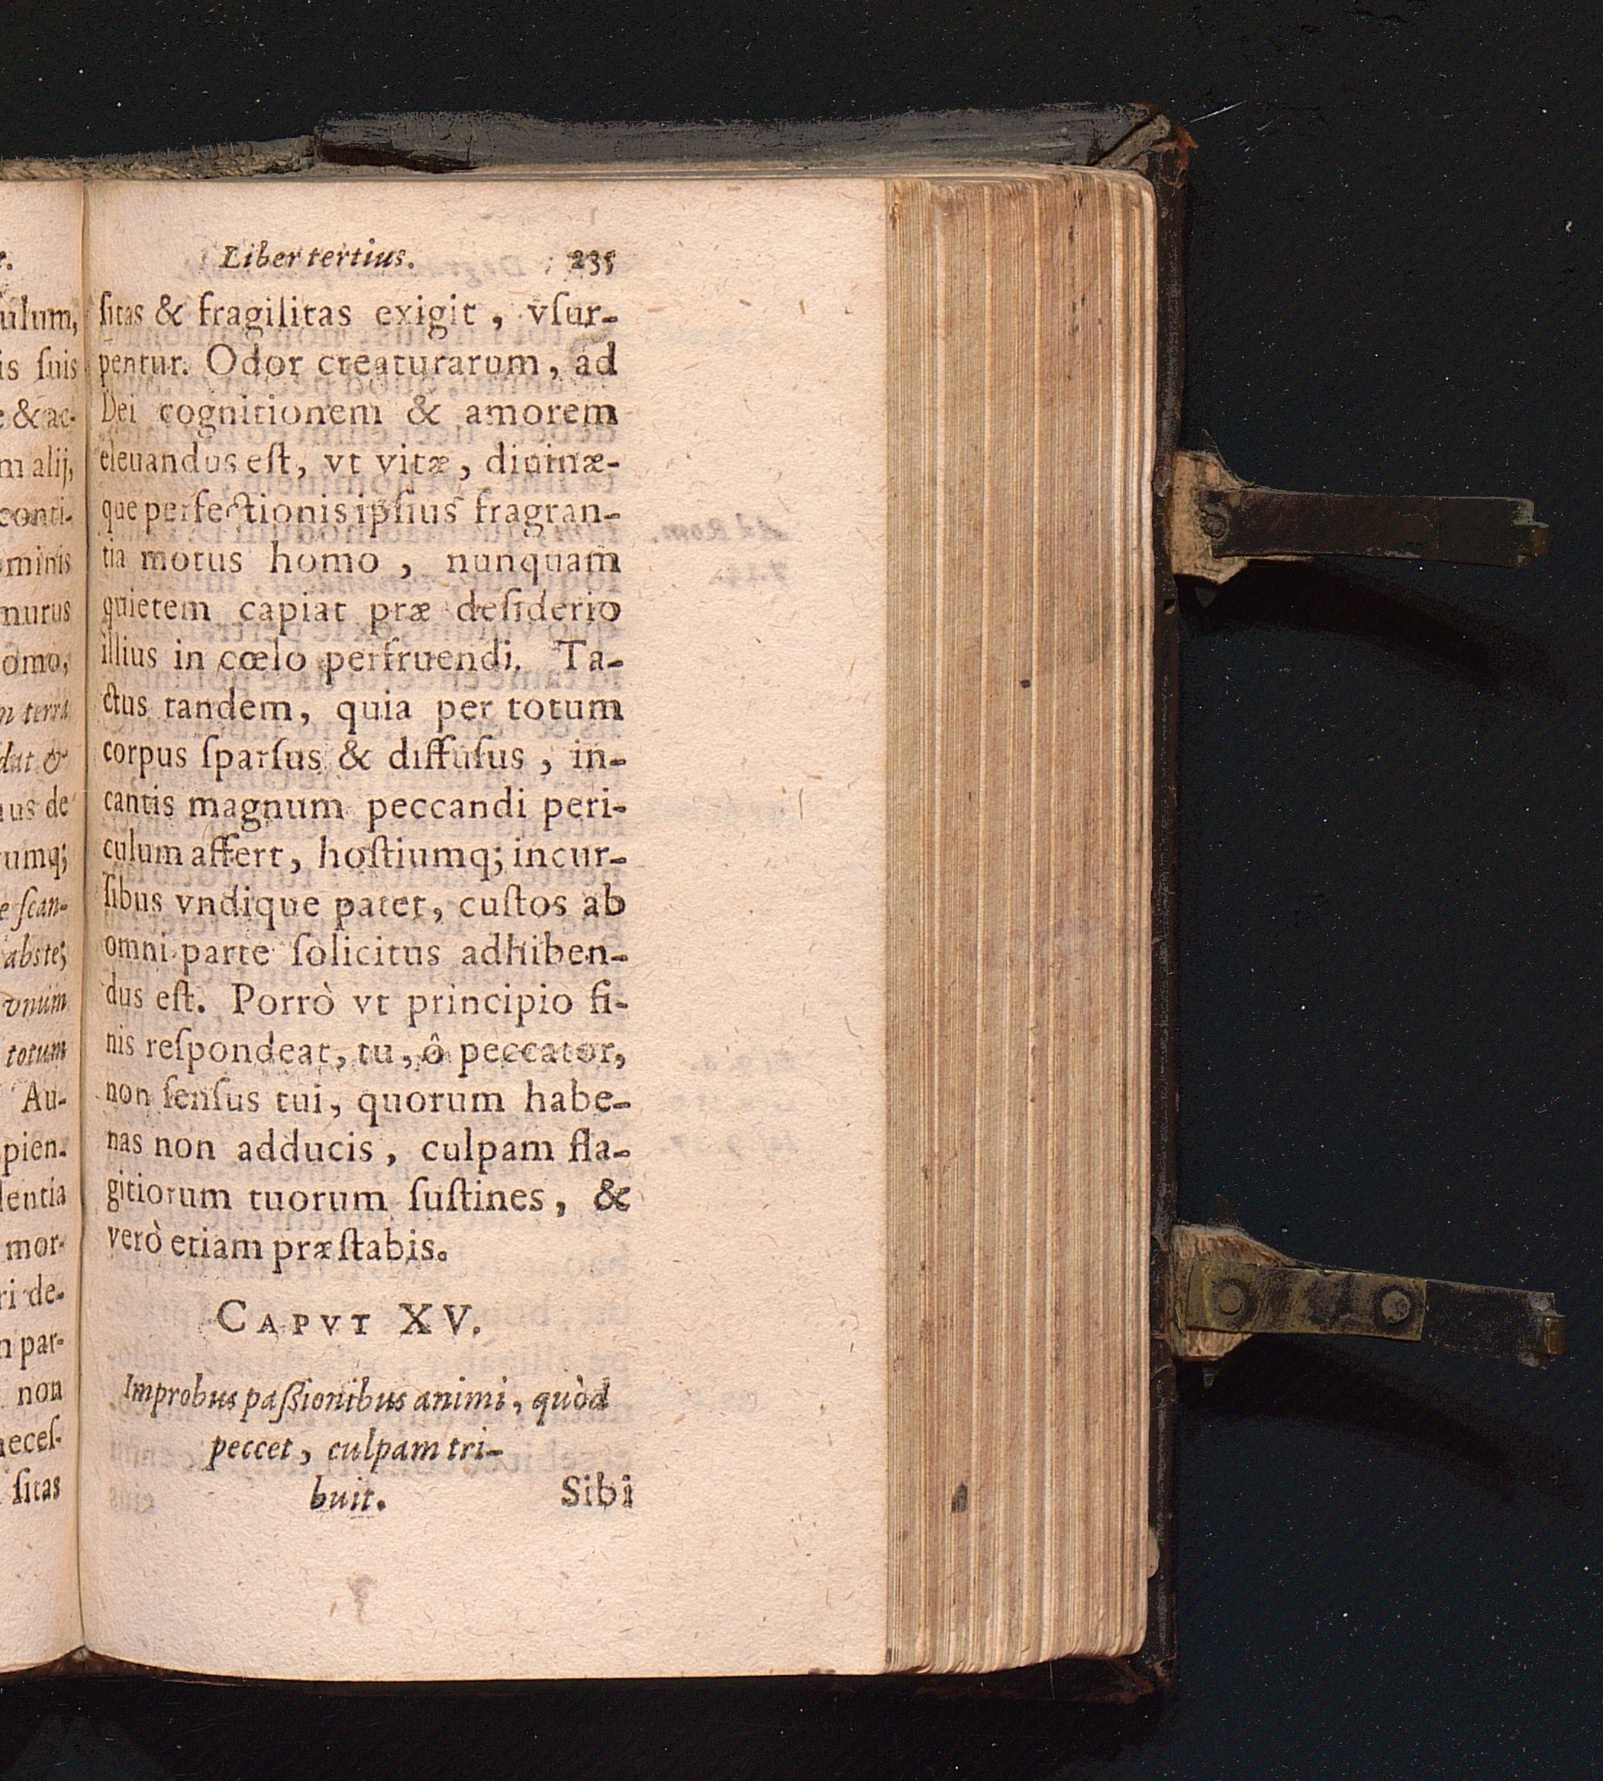 Liber tertius. 235
ſitas & fragilitas exigit, vſur-
pentur. Odor creaturarum, ad
Dei cognitionem & amorem
eleuandus eſt, vt vitæ, diuinæ-
que perfectionis ipſius fragran-
tia motus homo, nunquam
quietem capiat præ deſiderio
illius in cœlo perfruendi. Ta-
ctus tandem, quia per totum
corpus ſparſus & diffuſus, in-
cautis magnum peccandi peri-
culum affert, hoſtiumq; incur-
ſibus vndique patet, cuſtos ab
omni parte ſolicitus adhiben-
dus eſt. Porrò vt principio fi-
nis reſpondeat, tu, ô peccator,
non ſenſus tui, quorum habe-
nas non adducis, culpam fla-
gitiorum tuorum ſuſtines, &
verò etiam præſtabis.
CAPVT XV.
Improbus paſsionibus animi, quòd
peccet, culpam tri-
buit. Sibi
ulum,
is ſuis
e & ac-
m alij,
conti-
ominis
murus
omo,
n terra
dat &
us de
umq;
e ſcan-
abste;
vnum
totum
Au-
pien-
lentia
mor-
ri de-
n par-
non
neceſ-
ſitas